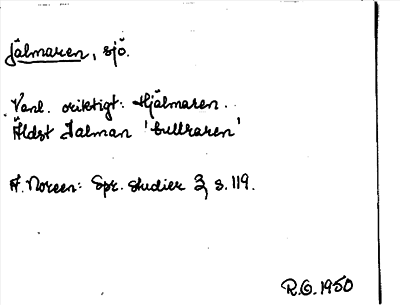 Jälmaren, sjö.
Vanl. oriktigt: Hjälmaren.
Äldst Ialman 'bullraren'
A. Noreen: Spr. studier 3, s. 119.
R.G. 1950